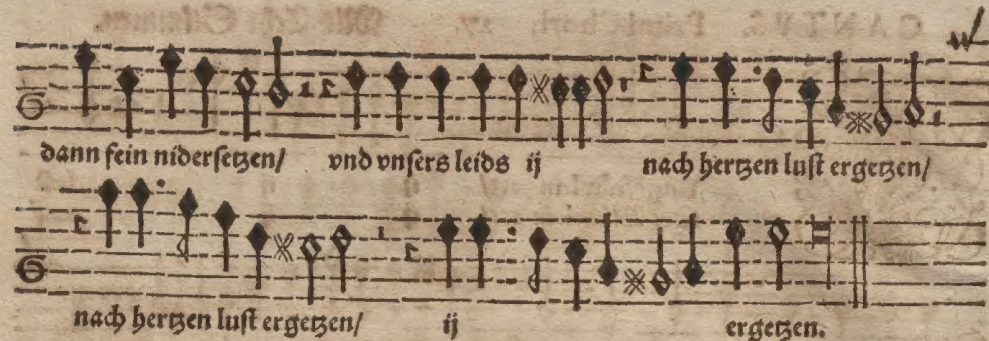 dann fein nidersetzen/ vnd vnsers leids ij nach hertzen lust ergetzen/
nach hertzen lust ergetzen/ ij ergetzen.